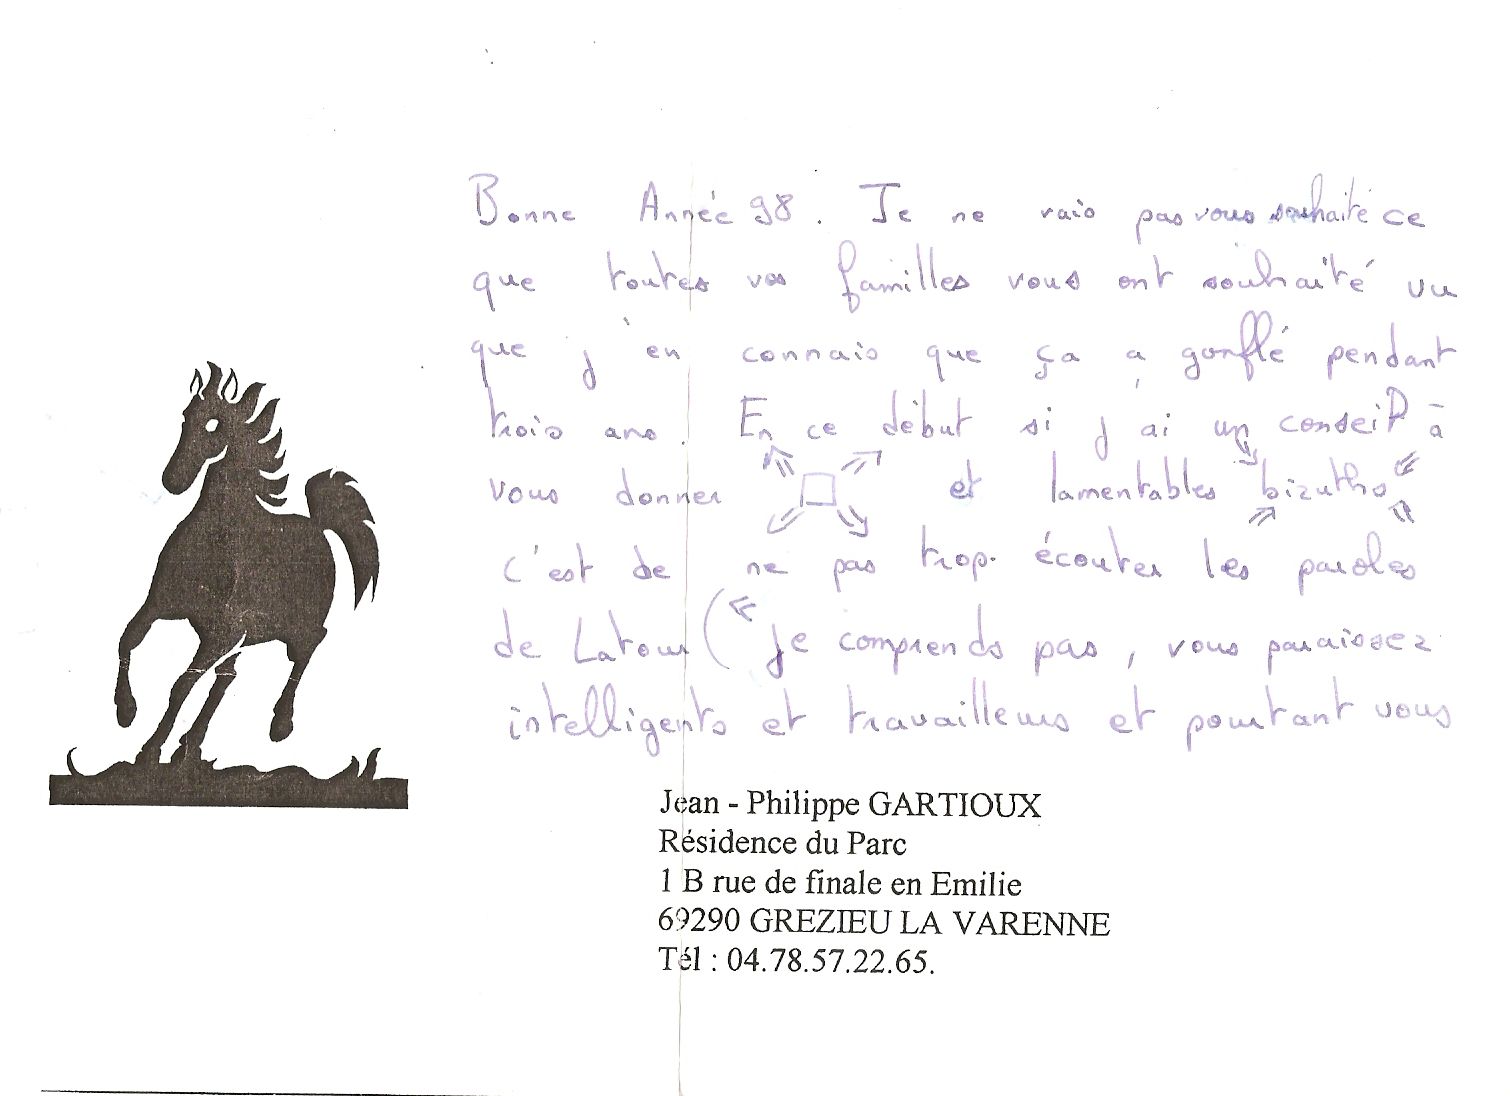 Bonne Année 98. Je ne vais pas vous souhaité ce
que toutes vos familles vous ont souhaité vu
que j'en connais que ça a gonflé pendant
trois ans. En ce début si j'ai un conseil à
vous donner □ et lamentables bizuths
c'est de ne pas trop écouter les paroles
de Latour ( « Je comprends pas, vous paraissez
intelligents et travailleurs et pourtant vous
Jean - Philippe GARTIOUX
Résidence du Parc
1 B rue de finale en Emilie
69290 GREZIEU LA VARENNE
Tél : 04.78.57.22.65.